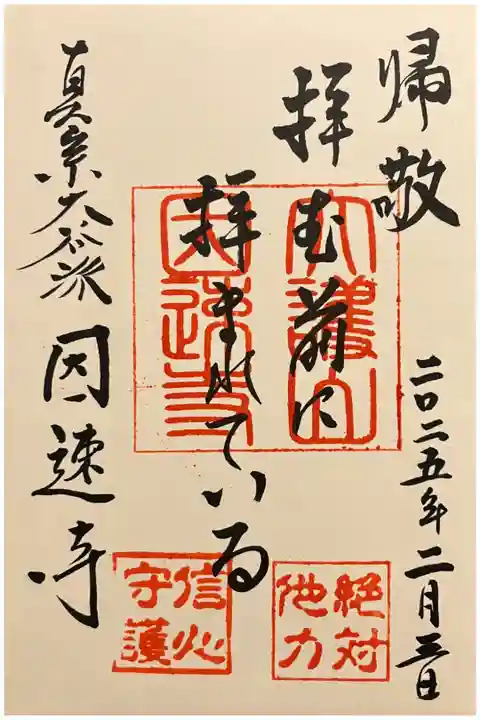 帰敬
二〇二五年二月三日
拝む前に
拝まれている
真宗大谷派 因速寺
絶対
他力
信心
守護